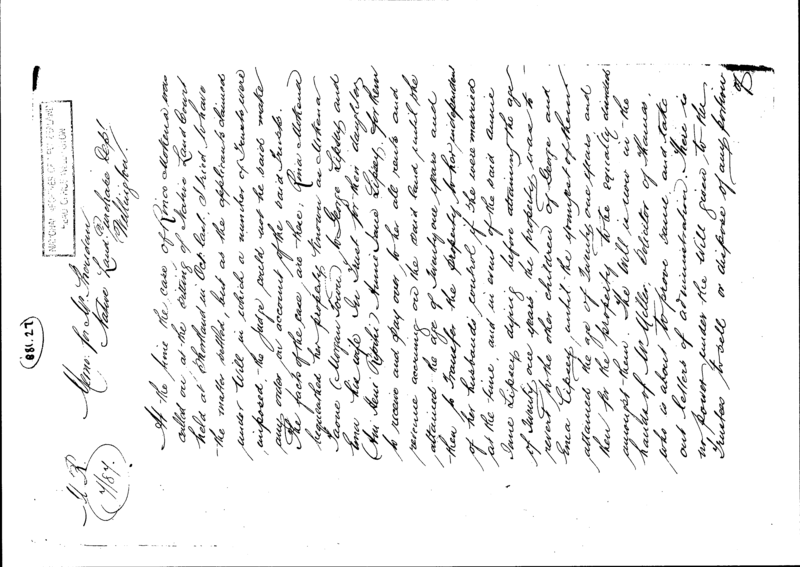 881.27
M R
7/87.
Mem. for Mr Sheridan
Native Land Purchase Dept
Wellington
At the time the case of Rina Mokena was
called on at the sitting of Native Land Court
held at Shortland in Oct last. I tried to have
the matter settled, but as the applicants claimed
under Will in which a number of Trusts were
imposed the Judge could not he said make
any order on account of the said Trusts.
The facts of the case are these. Rina Mokena
bequeathed her property known as Mokena
Taone (Morgan Town) to George Lipsey and
Ema his wife In Trust for their daughter
(Ani Heni Ripihi) Annie Jane Lipsey for them
to receive and pay over to her all rents and
revenue accruing on the said land until she
attained the age of Twenty one years and
then to Transfer the property to her independent
of her husbands control if she were married
at the time, and in event of the said Annie
Jane Lipsey dying before attaining the age
of Twenty one years the property was to
revert to the other children of George and
Ema Lipsey, until the youngest of them
attained the age of Twenty one years and
then for the property to be equally divided
amongst them. The Will is now in the
hands of Mr Miller Solicitor of Thames
who is about to prove same and take
out letters of administration. There is
no power under the Will given to the
Trustees to sell or dispose of any portion
of